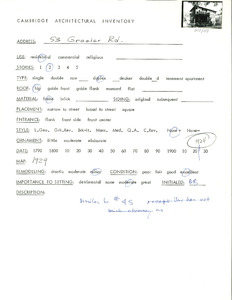 CAMBRIDGE ARCHITECTURAL INVENTORY
ADDRESS: 53 Grozier Rd.
USE: residential commercial religious
STORIES: 1 2 3 4 5
TYPE: single double row duplex decker double d tenement apartment
ROOF: hip gable front gable flank mansard flat
MATERIAL: frame brick SIDING: original subsequent
PLACEMENT: narrow to street broad to street square
ENTRANCE: flank front side front center
STYLE: L.Geo. Gk.Rev. Ital. Mans. Med. Q.A. C.Rev.
ORNAMENT: little moderate elaborate
DATE: 1790 1800 10 20 30 40 50 60 70 80 90 1900 10 20 30
MAP: 1924
REMODELING: drastic moderate minor CONDITION: poor fair good excellent
IMPORTANCE TO SETTING: detrimental some moderate great INITIALED: BR
DESCRIPTION:
Similar to # 45 except has not